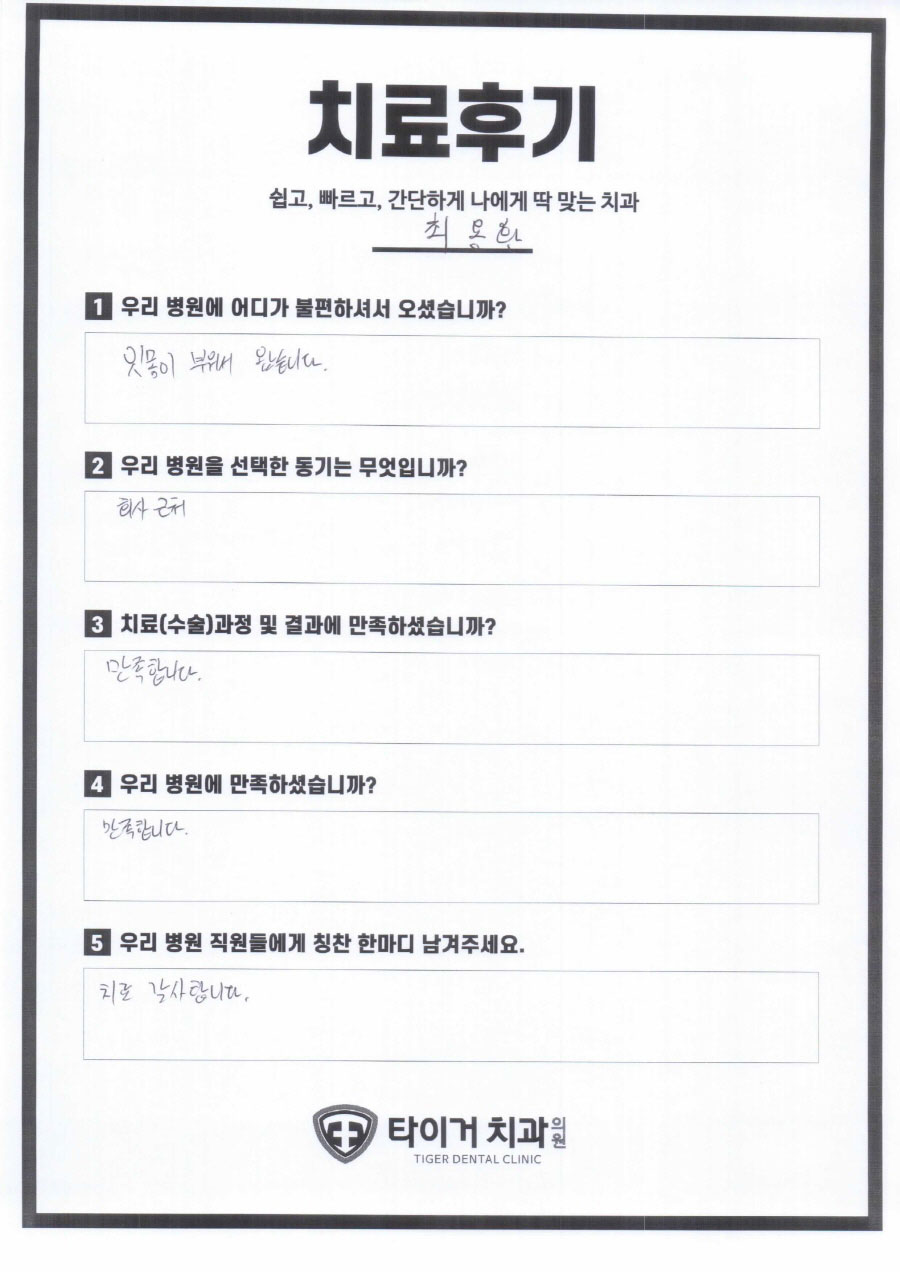 치료후기
쉽고, 빠르고, 간단하게 나에게 딱 맞는 치과
최용환
1 우리 병원에 어디가 불편하셔서 오셨습니까?
잇몸이 부워서 왔습니다.
2 우리 병원을 선택한 동기는 무엇입니까?
회사 근처
3 치료(수술)과정 및 결과에 만족하셨습니까?
만족합니다.
4 우리 병원에 만족하셨습니까?
만족합니다.
5 우리 병원 직원들에게 칭찬 한마디 남겨주세요.
치료 감사합니다.
타이거 치과의원
TIGER DENTAL CLINIC